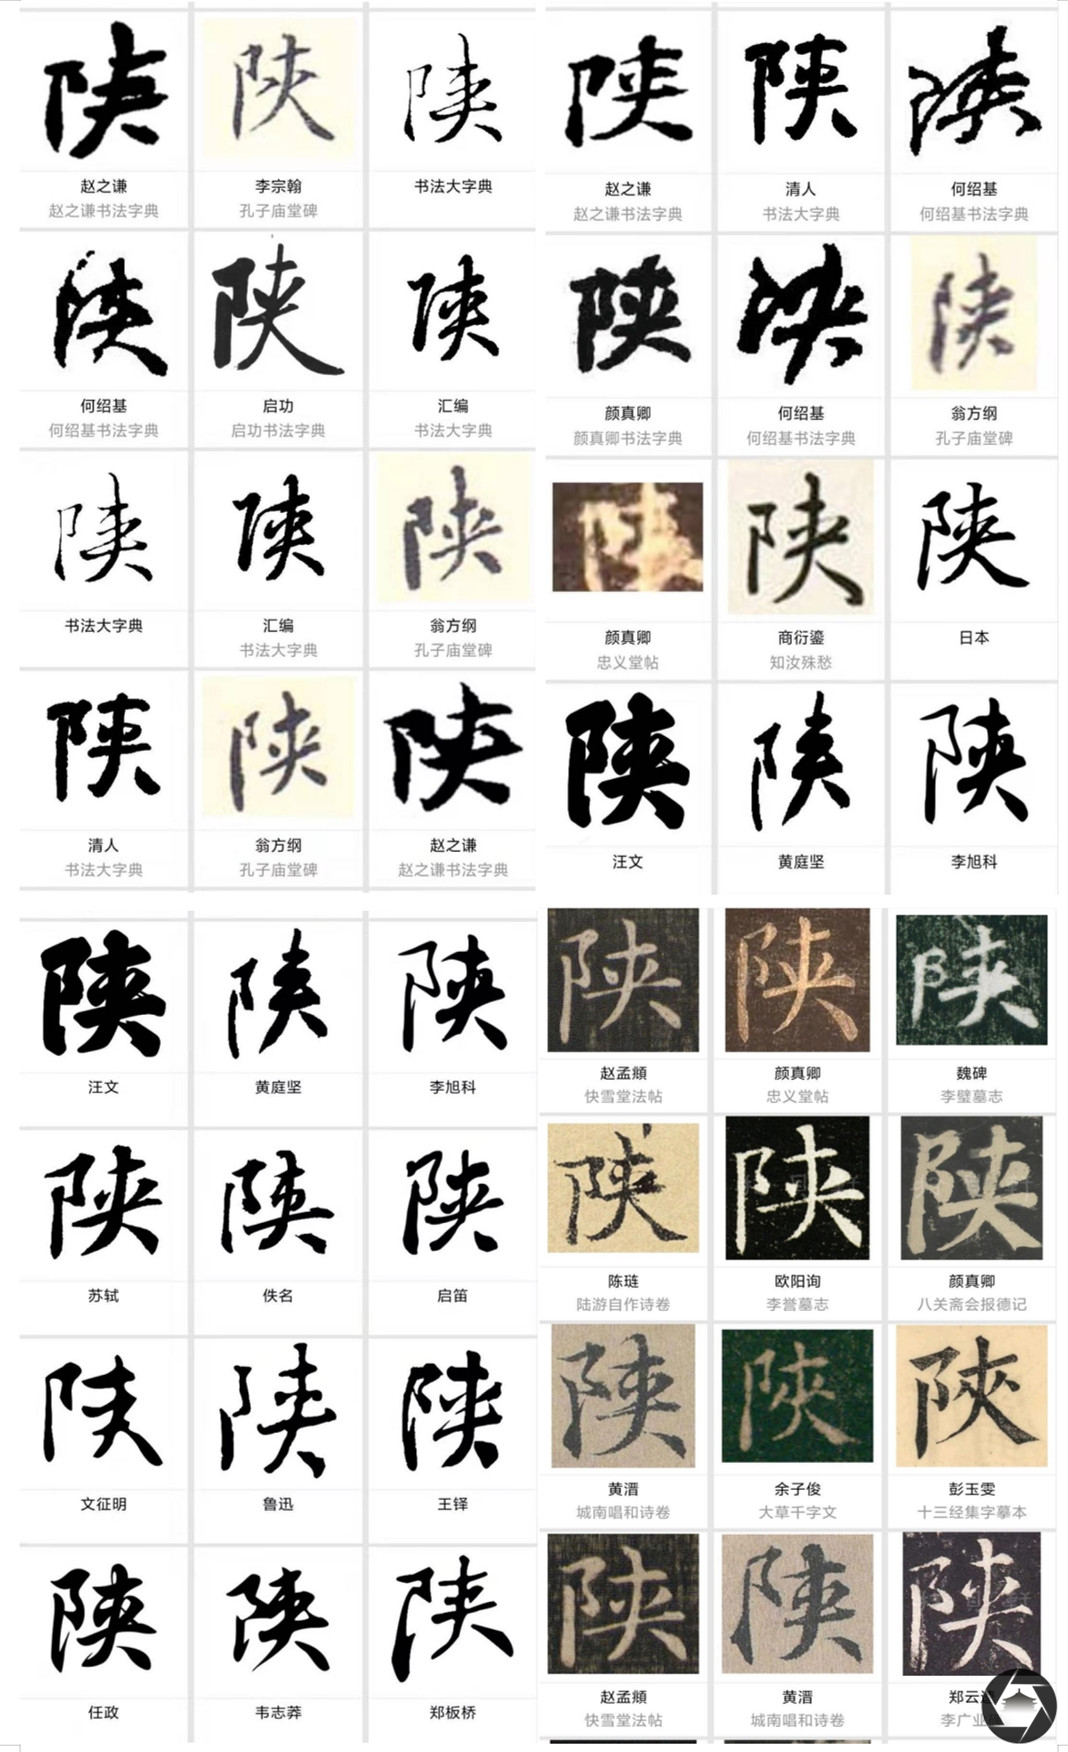 陕 陕 陕
赵之谦 李宗翰 书法大字典
赵之谦书法字典 孔子庙堂碑
陕 陕 陕
何绍基 启功 汇编
何绍基书法字典 启功书法字典 书法大字典
陕 陕 陕
书法大字典 汇编 翁方纲
书法大字典 孔子庙堂碑
陕 陕 陕
清人 翁方纲 赵之谦
书法大字典 孔子庙堂碑 赵之谦书法字典
陕 陕 陕
赵之谦 清人 何绍基
赵之谦书法字典 书法大字典 何绍基书法字典
陕 陕 陕
颜真卿 何绍基 翁方纲
颜真卿书法字典 何绍基书法字典 孔子庙堂碑
陕 陕 陕
颜真卿 商衍鎏 日本
忠义堂帖 知汝殊愁
陕 陕 陕
汪文 黄庭坚 李旭科
陕 陕 陕
汪文 黄庭坚 李旭科
陕 陕 陕
苏轼 佚名 启笛
陕 陕 陕
文征明 鲁迅 王铎
陕 陕 陕
任政 韦志莽 郑板桥
陕 陕 陕
赵孟頫 颜真卿 魏碑
快雪堂法帖 忠义堂帖 李璧墓志
陕 陕 陕
陈琏 欧阳询 颜真卿
陆游自作诗卷 李誉墓志 八关斋会报德记
陕 陝 陝
黄溍 余子俊 彭玉雯
城南唱和诗卷 大草千字文 十三经集字摹本
陕 陕 陕
赵孟頫 黄溍 郑云
快雪堂法帖 城南唱和诗卷 李广业